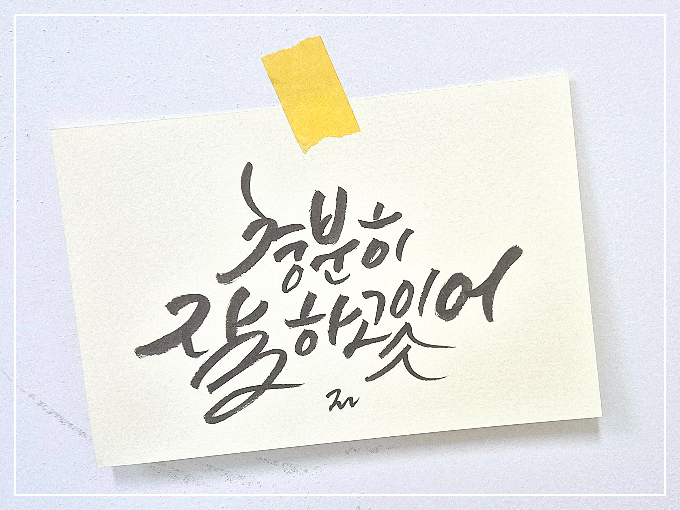 충분히
잘하고있어